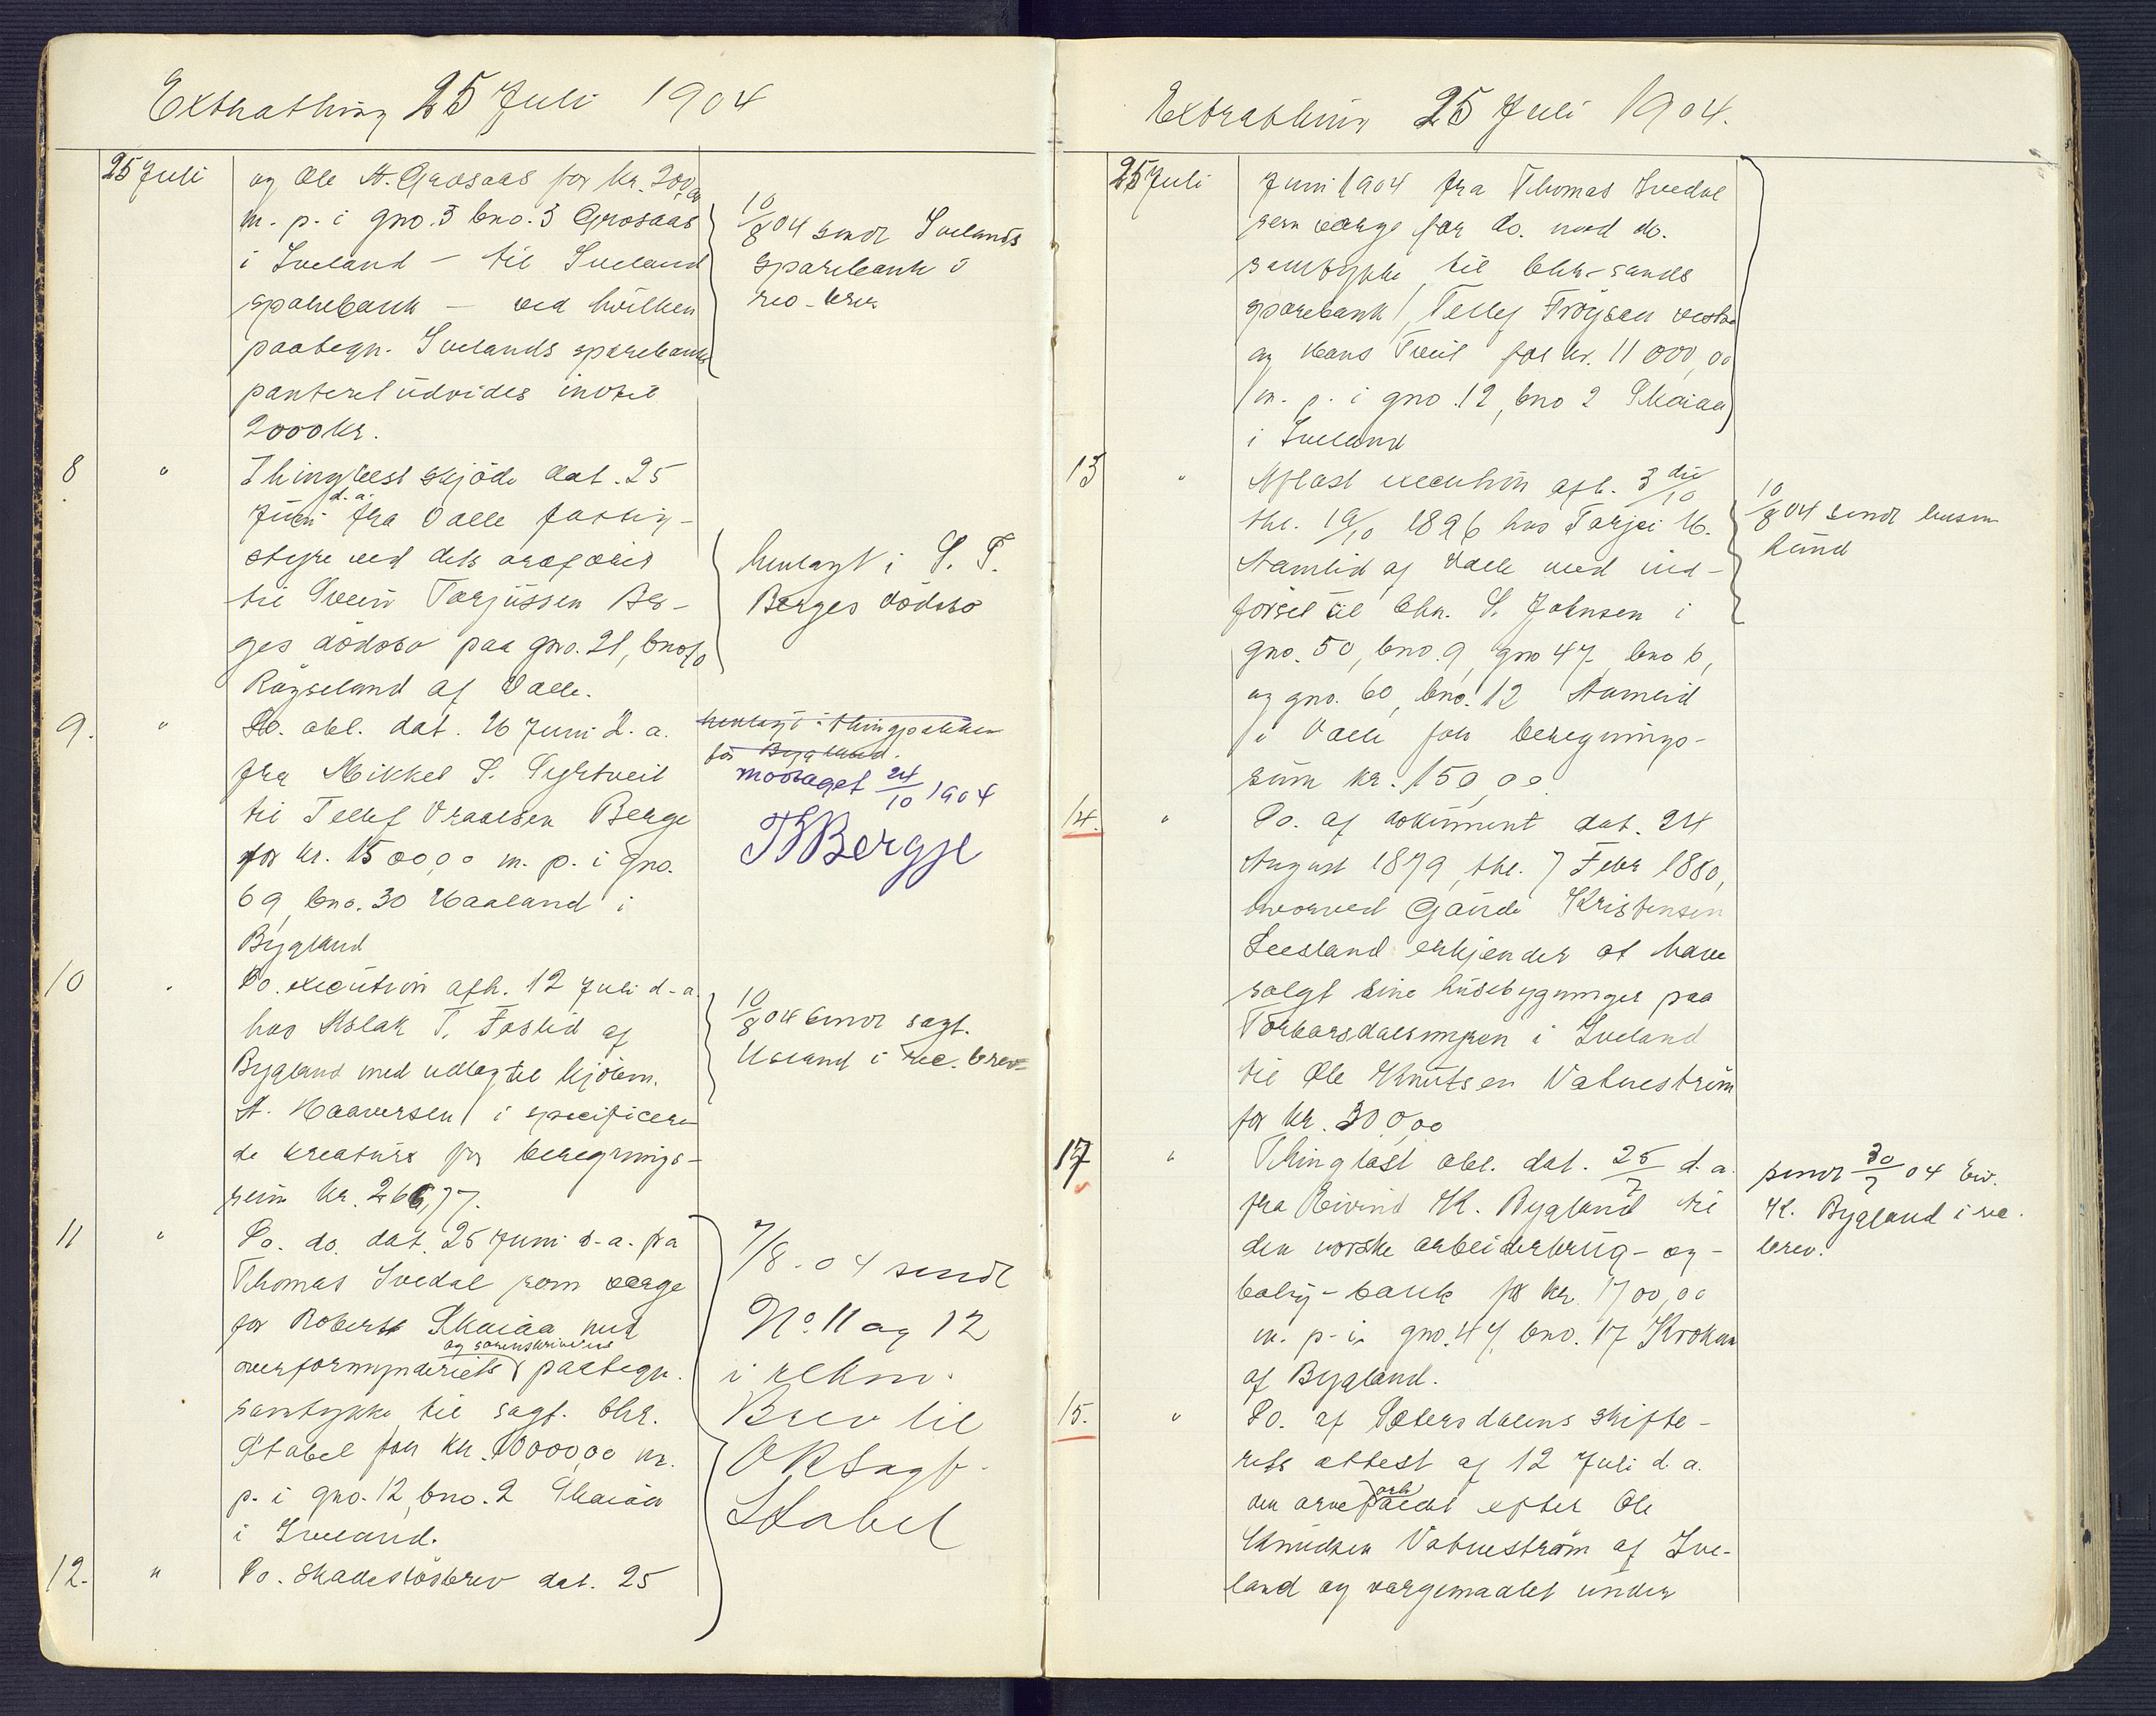 Extrathing 25 Juli 1904
25 Juli
og Ole A. Grosaas for kr. 200,00
m. p. i gno. 3 bno. 3 Grosaas
i Iveland – til Iveland
sparebank – ved hvilken
paategn. Ivelands sparebanks
panteret udvides indtil
2000 kr.
10/8 04 sendt Ivelands
sparebank i
rec-brev
8 " Thinglæst skjöde dat. 25
Juni d. a. fra Valle fattig-
styre ved dets ordförer
til Svein Torjussen Ber-
ges dödsbo paa gno. 21, bno 10
Rögseland af Valle.
henlagt i S. T.
Berges dödsbo
9. " Do. obl. dat. 26 Juni d. a.
fra Mikkel S. Syrtveit
til Tellef Draalsen Berge
for kr. 1500,00 m. p. i gno.
69, bno. 30 Haaland i
Bygland
henlagt i thingpakken
for Bygland.
modtaget 24/10 1904
TBBergje
10 " Do. execution afh. 12 Juli d. a.
hos Aslak T. Faslid af
Bygland med udlæg til kjöbm.
A. Haaversen i specificere-
de kreature for beregnings-
sum kr. 266,77.
10/8 04 sendt sagf.
Useland i rec. brev
11 " Do. do. dat. 25 Juni d. a. fra
Thomas Ivedal som værge
for Robert Skaiaa med
overformynderiets og sorenskriverens paategn.
samtykke til sagf. Chr.
Stabel for kr. 10000,00 m.
p. i gno. 12, bno. 2 Skaiaa
i Iveland.
7/8 - 04 sendt
No. 11 og 12
i rekm.
Brev til
ORSagf.
Stabel
12. " Do. skadeslösbrev dat. 25
Extrathing 25 Juli 1904.
25 Juli
Juni 1904 fra Thomas Ivedal
som værge for do. med do.
samtykke til Chr-sands
sparebank, Tellef Fröysaa
og Hans Tveit for kr. 11000,00
m. p. i gno. 12, bno 2 Skaiaa
i Iveland
13 " Aflæst execution afh. 3die/10
thl. 19/10 1896 hos Tarjei K.
Aamlid af Valle med ind-
försel til Chr. S. Johnsen i
gno. 50, bno. 9, gno 47 bno 6,
og gno. 60, bno. 12 Aamlid
i Valle for beregnings-
sum kr. 150,00.
10/8 04 sendt lensm
Lund
14. " Do. af dokument dat. 24
August 1879, thl. 7 Febr 1880,
hvorved Gaute Kristensen
Leesland erkjender at have
solgt sine husebygninger paa
Torborsdalsmyren i Iveland
til Ole Knutsen Vatneström
for kr. 300,00
17 " Thinglæst obl. dat. 25/7 d. a.
fra Eivind K. Bygland til
den norske arbeiderbrug- og-
bolig-bank for kr. 1700,00
m. p. i gno. 44, bno. 17 Krokmo
af Bygland.
sendt 30/7 04 Eiv.
K. Bygland i rec.
brev.
15. " Do. af Sætersdalens skifte-
rets attest af 12 Juli d. a.
om arveforholdet efter Ole
Knudsen Vatneström af Ive-
land og værgemaalet under